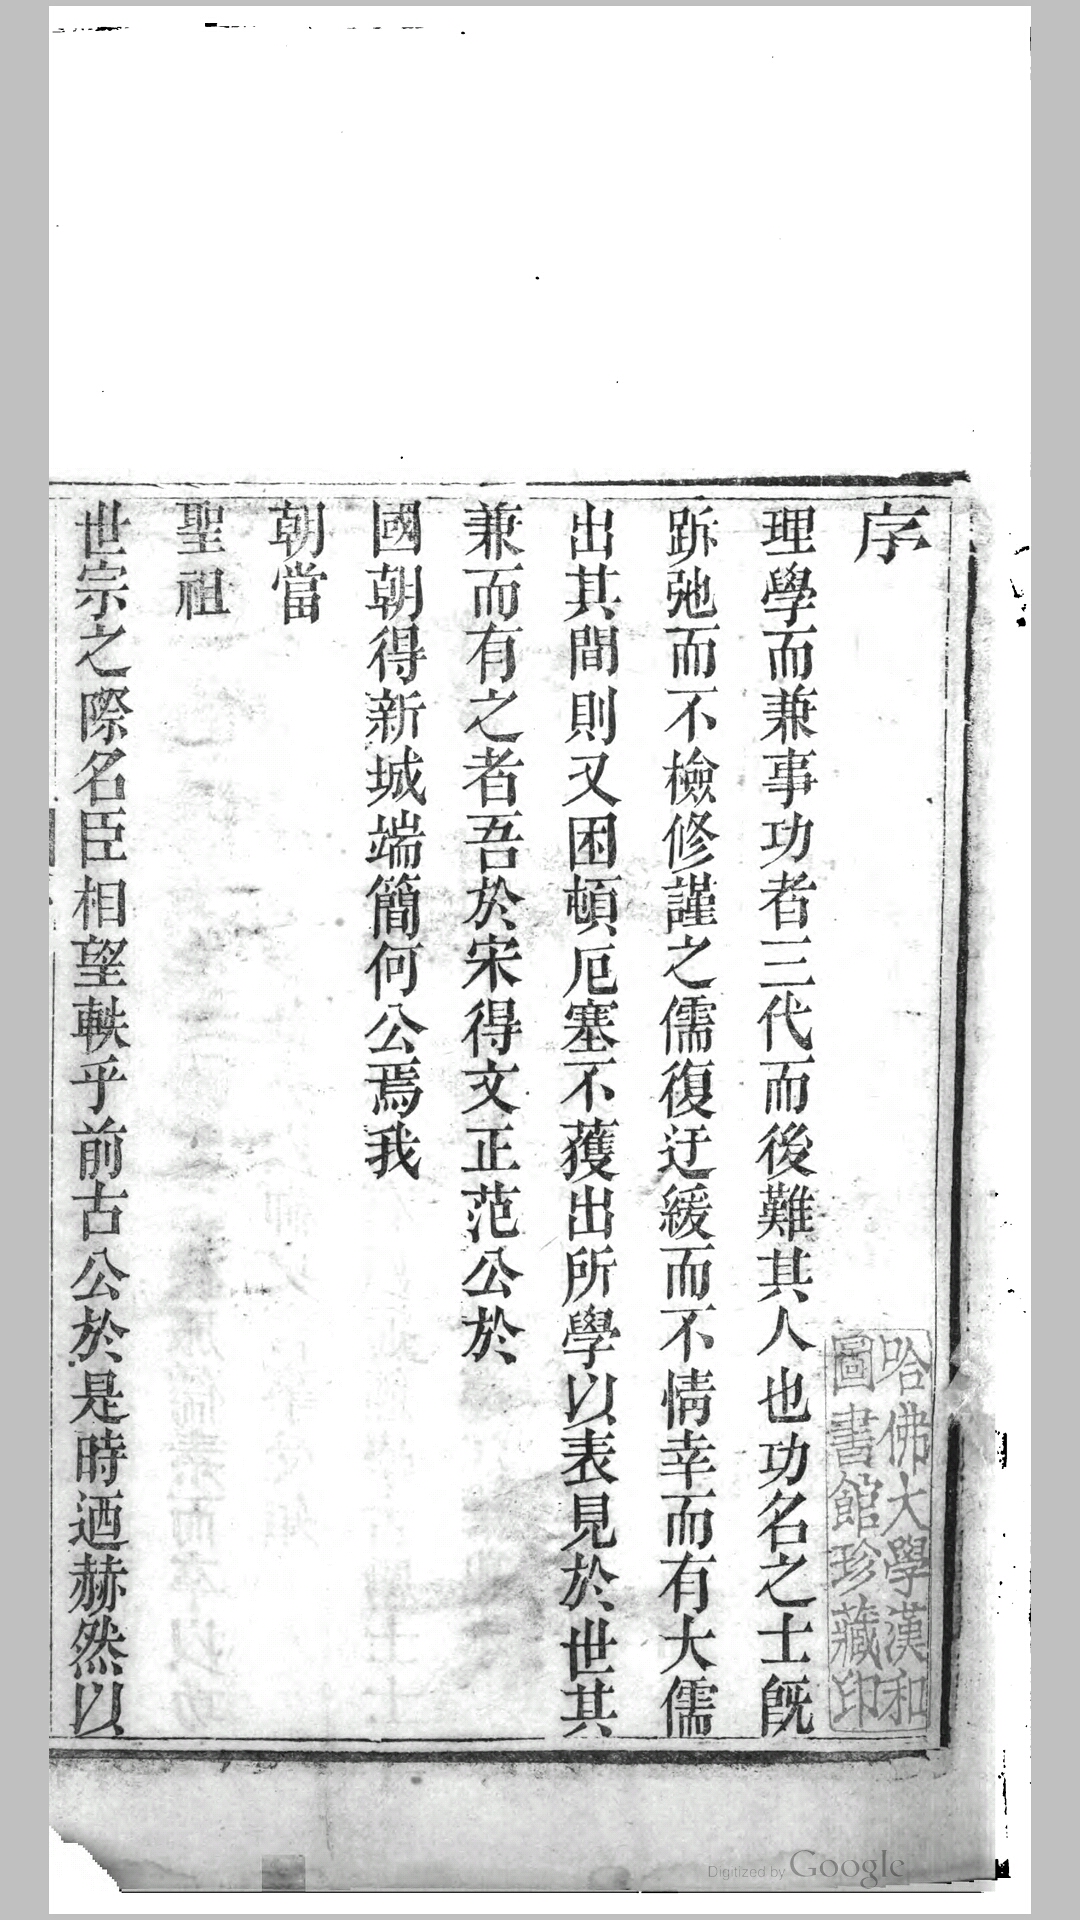 序
理學而兼事功者三代而後難其人也功名之士旣
跅弛而不檢修謹之儒復迂緩而不情幸而有大儒
出其間則又困頓厄塞不獲出所學以表見於世其
兼而有之者吾於宋得文正范公於
國朝得新城端簡何公焉我
朝當
聖祖
世宗之際名臣相望軼乎前古公於是時迺赫然以
哈佛大學漢和
圖書館珍藏印
Digitized by Google